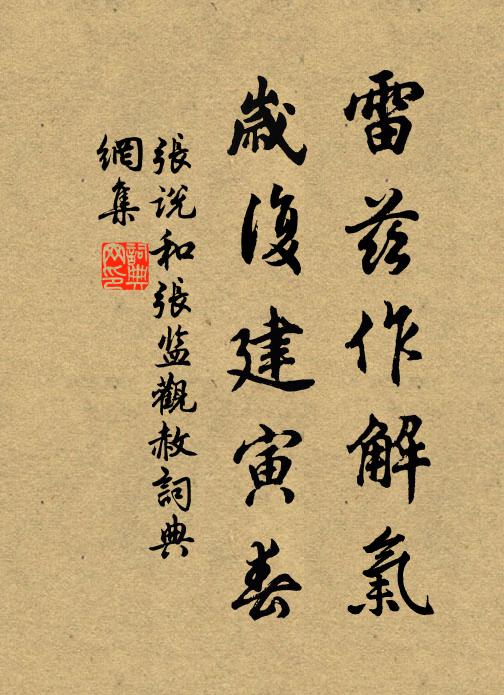 雷茲作解氣
歲復建寅春
張說和張監觀赦詞典
網集
詞典網印